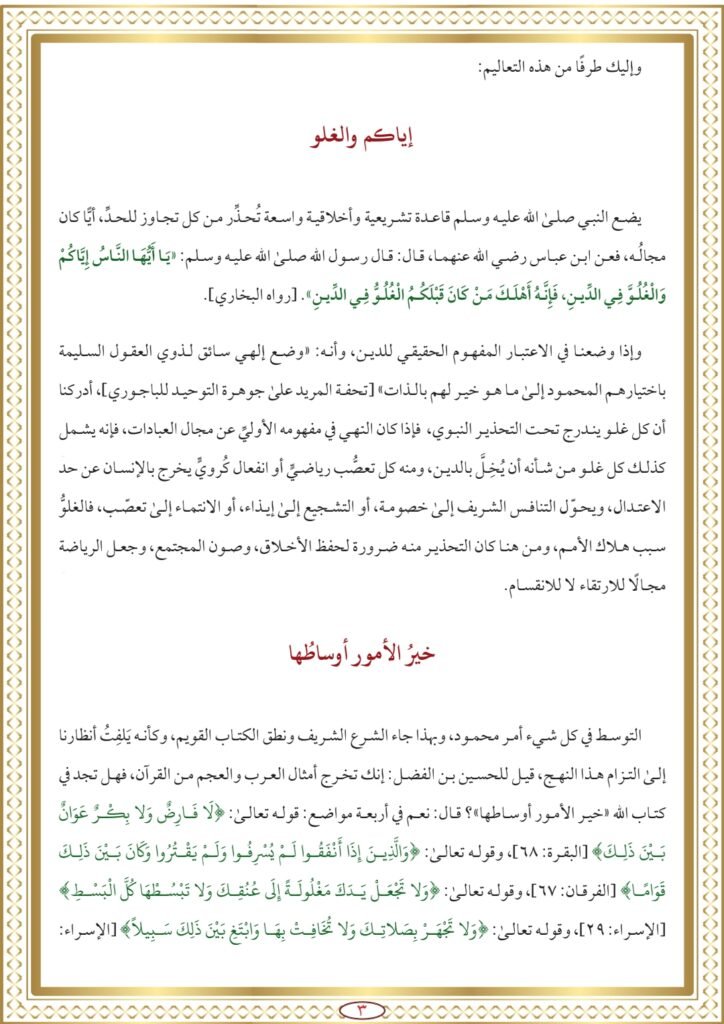 وإليك طرفًا من هذه التعاليم:
إياكم والغلو
يضع النبي صلىٰ الله عليه وسلم قاعدة تشريعية وأخلاقية واسعة تُحذِّر من كل تجاوز للحدِّ، أيًّا كان
مجالُه، فعن ابن عباس رضي الله عنهما، قال: قال رسول الله صلىٰ الله عليه وسلم: «يَا أَيُّهَا النَّاسُ إِيَّاكُمْ
وَالْغُلُوَّ فِي الدِّينِ، فَإِنَّهُ أَهْلَكَ مَنْ كَانَ قَبْلَكُمُ الْغُلُوُّ فِي الدِّينِ». [رواه البخاري].
وإذا وضعنا في الاعتبار المفهوم الحقيقي للدين، وأنه: «وضع إلهي سائق لذوي العقول السليمة
باختيارهم المحمود إلىٰ ما هو خير لهم بالذات» [تحفة المريد علىٰ جوهرة التوحيد للباجوري]، أدركنا
أن كل غلو يندرج تحت التحذير النبوي، فإذا كان النهي في مفهومه الأوليِّ عن مجال العبادات، فإنه يشمل
كذلك كل غلو من شأنه أن يُخِلَّ بالدين، ومنه كل تعصُّب رياضيٍّ أو انفعال كُرويٍّ يخرج بالإنسان عن حد
الاعتدال، ويحوّل التنافس الشريف إلىٰ خصومة، أو التشجيع إلىٰ إيذاء، أو الانتماء إلىٰ تعصّب، فالغلوُّ
سبب هلاك الأمم، ومن هنا كان التحذير منه ضرورة لحفظ الأخلاق، وصون المجتمع، وجعل الرياضة
مجالًا للارتقاء لا للانقسام.
خيرُ الأمور أوساطُها
التوسط في كل شيء أمر محمود، وبهذا جاء الشرع الشريف ونطق الكتاب القويم، وكأنه يَلفِتُ أنظارنا
إلىٰ التزام هذا النهج، قيل للحسين بن الفضل: إنك تخرج أمثال العرب والعجم من القرآن، فهل تجد في
كتاب الله «خير الأمور أوساطها»؟ قال: نعم في أربعة مواضع: قوله تعالىٰ: ﴿لَا فَارِضٌ وَلَا بِكْرٌ عَوَانٌ
بَيْنَ ذَلِكَ﴾ [البقرة: ٦٨]، وقوله تعالىٰ: ﴿وَالَّذِينَ إِذَا أَنْفَقُوا لَمْ يُسْرِفُوا وَلَمْ يَقْتُرُوا وَكَانَ بَيْنَ ذَلِكَ
قَوَامًا﴾ [الفرقان: ٦٧]، وقوله تعالىٰ: ﴿وَلَا تَجْعَلْ يَدَكَ مَغْلُولَةً إِلَى عُنُقِكَ وَلَا تَبْسُطْهَا كُلَّ الْبَسْطِ﴾
[الإسراء: ٢٩]، وقوله تعالىٰ: ﴿وَلَا تَجْهَرْ بِصَلَاتِكَ وَلَا تُخَافِتْ بِهَا وَابْتَغِ بَيْنَ ذَلِكَ سَبِيلاً﴾ [الإسراء:
٣